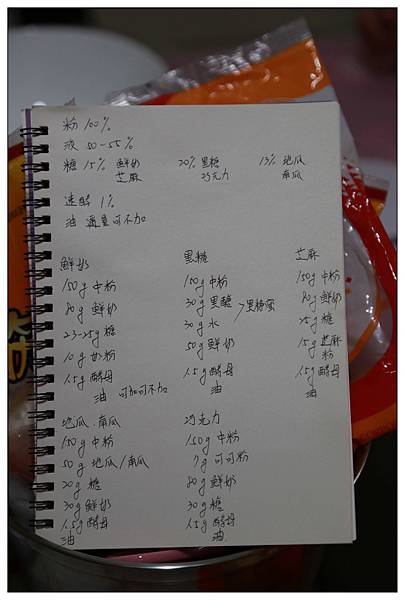 粉 100%
液 50-55%
糖 15% 鮮奶 20% 黑糖 13% 地瓜
芝麻 巧克力 南瓜
速酵 1%
油 適量可不加
鮮奶
150g 中粉
80g 鮮奶
23-25g 糖
10g 奶粉
1.5g 酵母
油 可加可不加
黑糖
150g 中粉
30g 黑糖 >黑糖蜜
30g 水
50g 鮮奶
1.5g 酵母
油
芝麻
150g 中粉
80g 鮮奶
25g 糖
15g 芝麻
粉
1.5g 酵母
油
地瓜、南瓜
150g 中粉
50g 地瓜/南瓜
20g 糖
30g 鮮奶
1.5g 酵母
油
巧克力
150g 中粉
7g 可可粉
80g 鮮奶
30g 糖
1.5g 酵母
油